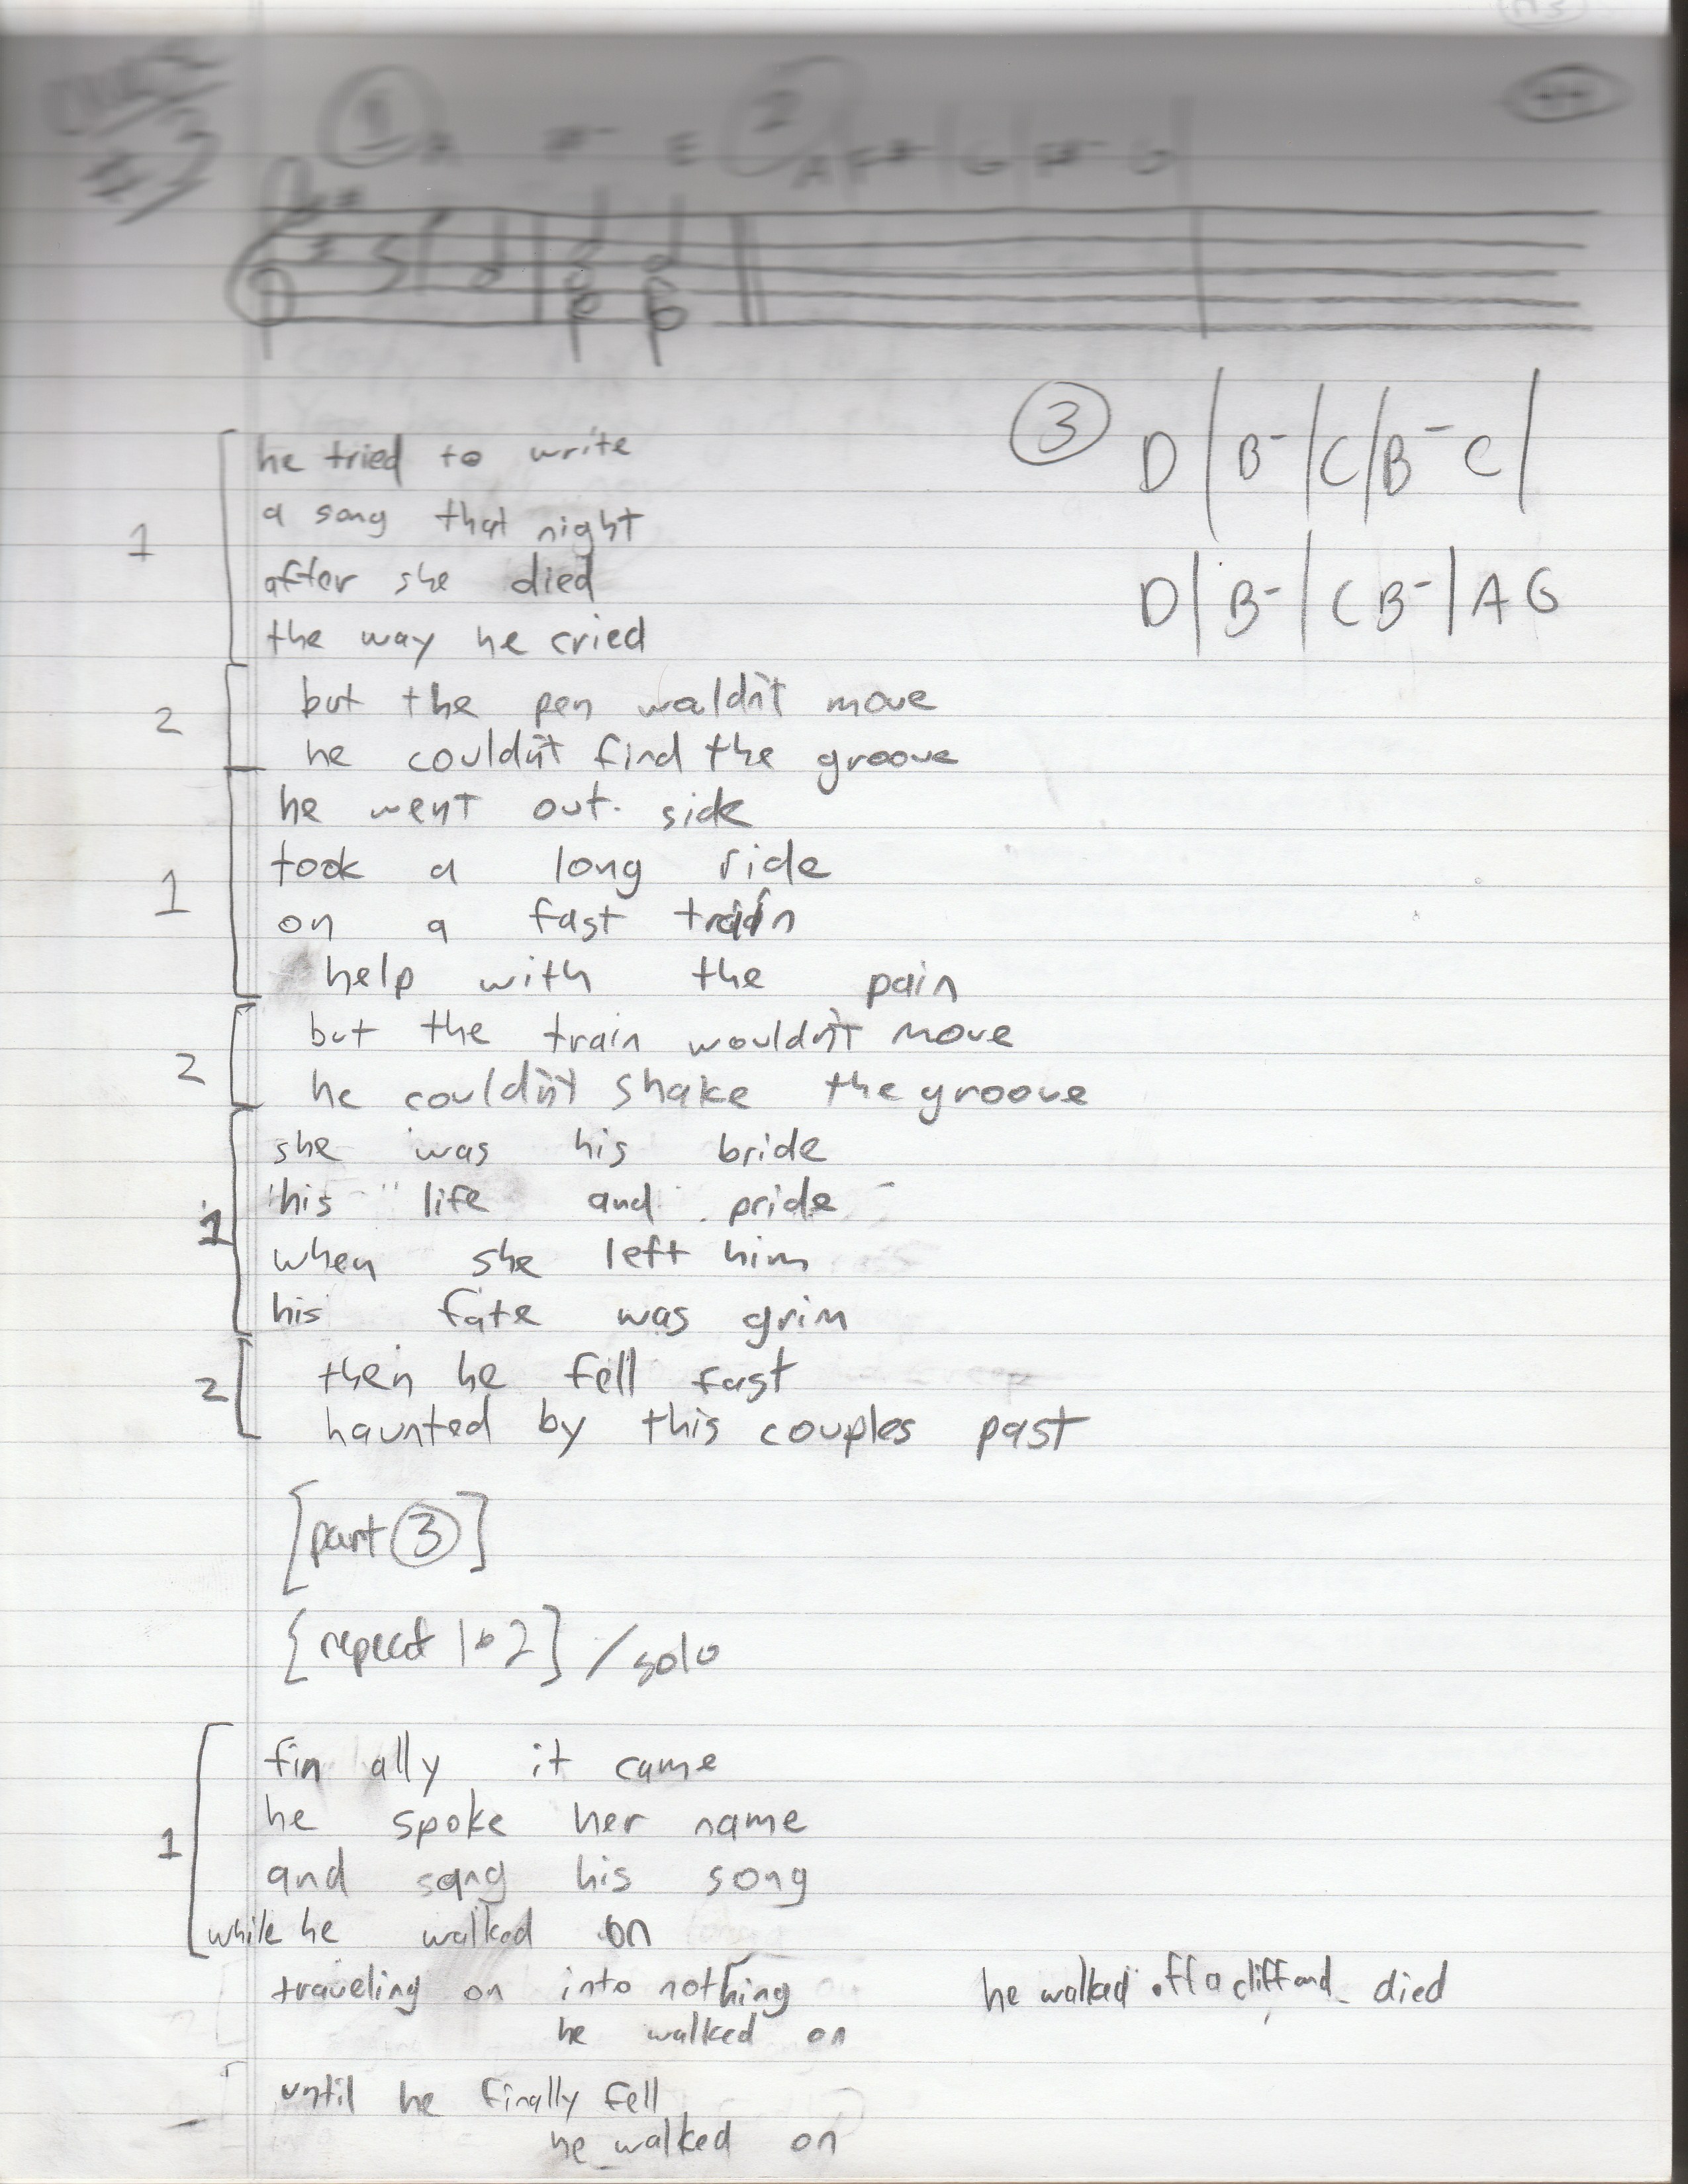 #3
1 A F#- E 2 A F#- | G | F#- G |
3 D | B- | C | B- C |
D | B- | C B- | A G
he tried to write
a song that night
1
after she died
the way he cried
but the pen wouldn't move
2
he couldn't find the groove
he went out. side
took a long ride
1
on a fast train
help with the pain
but the train wouldn't move
2
he couldn't shake the groove
she was his bride
his life and pride
1
when she left him
his fate was grim
then he fell fast
2
haunted by this couples past
[part 3]
[repeat 1 & 2] / solo
fin ally it came
he spoke her name
1
and sang his song
while he walked on
traveling on into nothing he walked off a cliff and died
he walked on
until he finally fell
he walked on